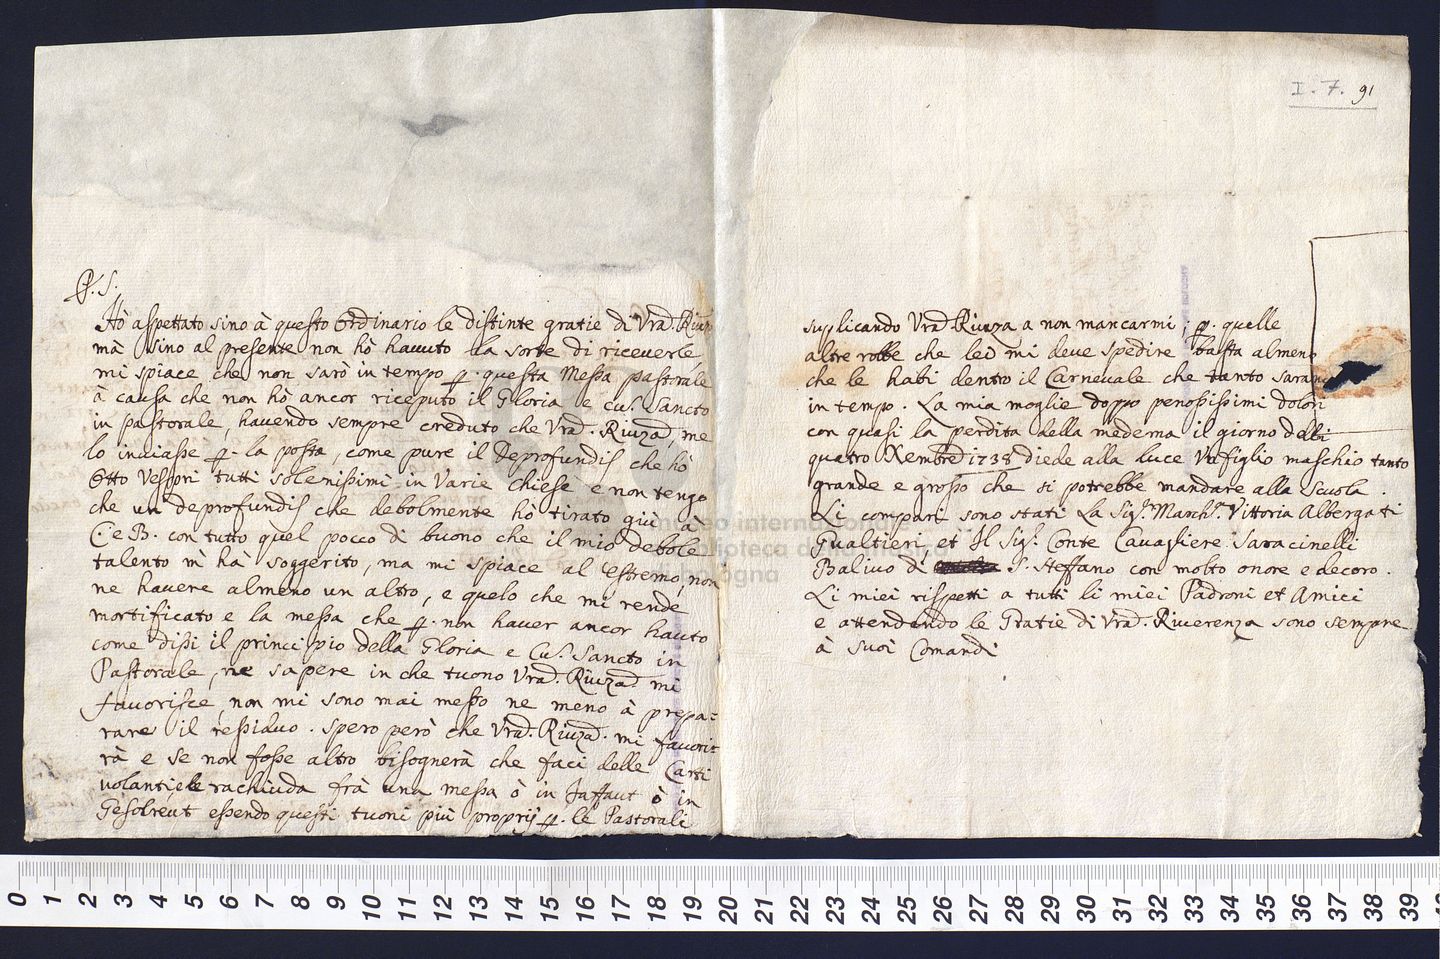 I. 7. 91
P. S.
Hò aspettato sino à questo Ordinario le distinte gratie di Vrãd. Riurza
mà sino al presente non hò hauuto la sorte di riceuerle,
mi spiace che non sarò in tempo p. questa Messa pastorale
à causa che non hò ancor riceputo il Gloria e cu. Sancto
in pastorale, hauendo sempre creduto che Vrãd. Riurzad. me
lo inuiasse p. la posta, come pure il Deprofundis, che hò
Otto Vespori tutti solenissimi in Varie chiese e non tengo
che un deprofundis che debolmente hò tirato giù à
C: e B. con tutto quel pocco di buono che il mio debole
talento m hà soggerito, ma mi spiace al estremo, non
ne hauere almeno un altro, e quelo che mi rende
mortificato e la messa che p. non hauer ancor hauto
come dissi il principio della Gloria e Cu. Sancto in
Pastorale, ne sapere in che tuono Vrãd. Riurzad. mi
fauorisce, non mi sono mai messo ne meno à prepa=
rare il ressiduo. spero però che Vrãd. Riurzad. mi fauori
rà e se non fosse altro bisognerà che faci delle Carti
uolanti, e le rachiuda frà una messa ò in Faffaut ò in
Gesolreut essendo questi tuoni più proprij p. le Pastorali
suplicando Vrãd. Riurza a non mancarmi; p. quelle
altre robbe che lei mi deue spedire basta almeno
che le habi dentro il Carneuale che tanto saran
in tempo. La mia moglie doppo penosissimi dolori
con quasi la perdita della medema il giorno delli
quatro Xembre 1738 diede alla luce Un figlio maschio tanto
grande e grosso che si potrebbe mandare alla scuola.
Li compari sono stati La Sig.ra March.a Vittoria Albergati
Gualtieri et Il Sig. Conte Cauagliere Saracinelli
Baliuo di S. Steffano con molto onore e decoro.
Li miei rispetti a tutti li miei Padroni et Amici
e attendendo le Gratie di Vrãd. Riuerenza sono sempre
à suoi Comandi
museo internazionale
biblioteca della musica
di bologna
0 1 2 3 4 5 6 7 8 9 10 11 12 13 14 15 16 17 18 19 20 21 22 23 24 25 26 27 28 29 30 31 32 33 34 35 36 37 38 39